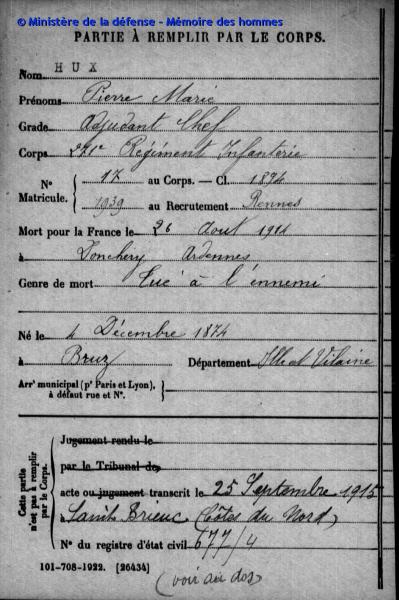 © Ministère de la défense - Mémoire des hommes
PARTIE À REMPLIR PAR LE CORPS.
Nom HUX
Prénoms Pierre Marie
Grade Adjudant Chef
Corps 271e Régiment Infanterie
N° Matricule. 17 au Corps. — Cl. 1894
1939 au Recrutement Rennes
Mort pour la France le 26 Aout 1914
à Donchery Ardennes
Genre de mort Tué à l'ennemi
Né le 4 Décembre 1874
à Bruz Département Ille et Vilaine
Arrt municipal (pr Paris et Lyon), à défaut rue et N°.
Cette partie n'est pas à remplir par le Corps.
Jugement rendu le
par le Tribunal de
acte ou jugement transcrit le 25 Septembre 1915
Saint Brieuc (Côtes du Nord)
N° du registre d'état civil 677/4
101-708-1922. [26434]
(voir au dos)